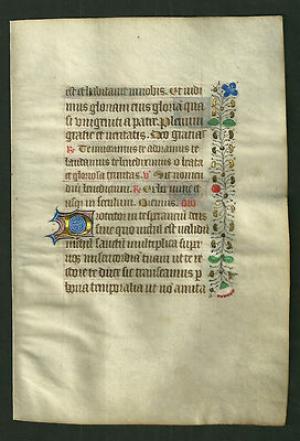 est et habitauit in nobis. Et uidi
mus gloriam eius gloria qua
si unigeniti a patre. Plenum
gratie et ueritatis. Deo gracias
Te inuocamus te adoramus te
laudamus te benedicimus o beata
et gloriosa trinitas. V Sit nomen
dni benedictum. R Ex hoc nunc et
usqz in seculum. Oremus. Oro
Protector in te sperancium deus
sine quo nichil est ualidum
nichil sanctum multiplica super
nos misericordia tuam ut te re
ctore te duce sic transeamus p
bona temporalia ut no amitta